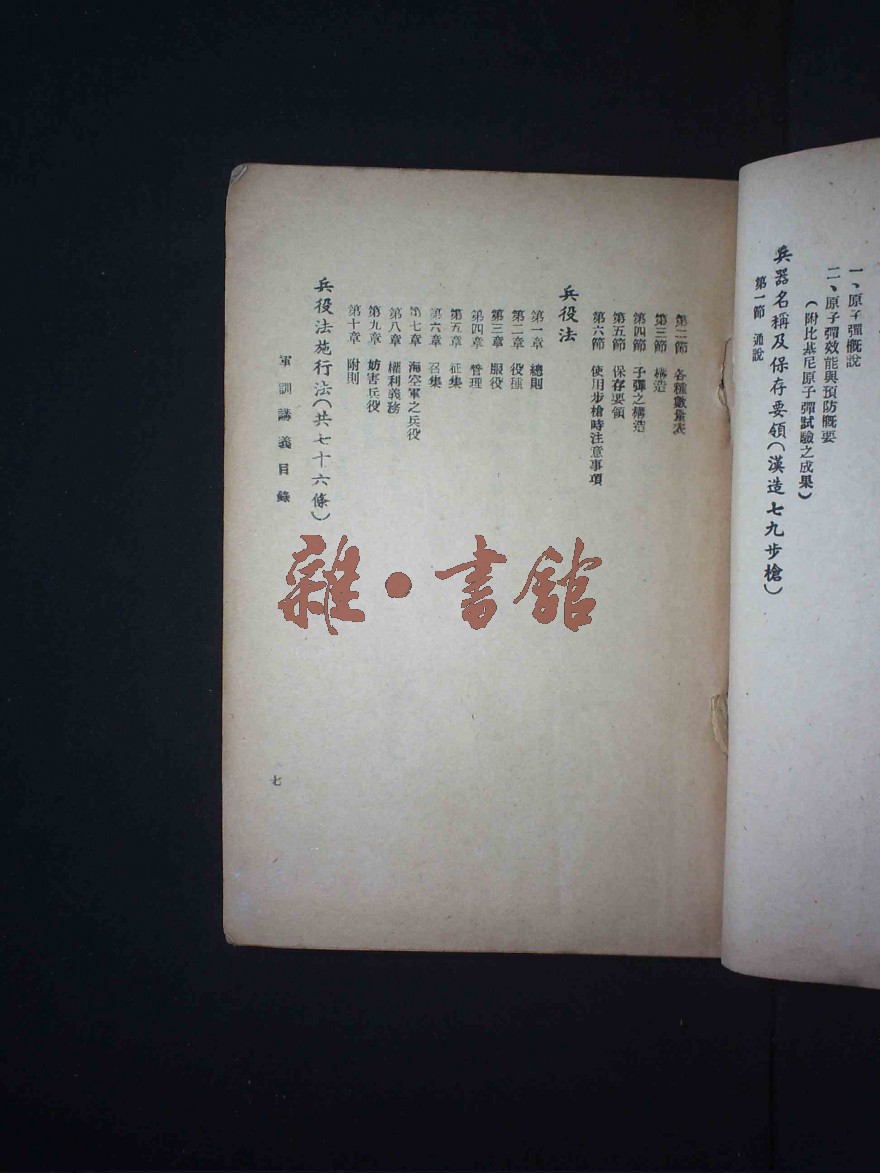 一、原子彈概說
二、原子彈效能與預防概要
（附比基尼原子彈試驗之成果）
兵器名稱及保存要領（漢造七九步槍）
第一節　通說
第二節　各種數量表
第三節　構造
第四節　子彈之構造
第五節　保存要領
第六節　使用步槍時注意事項
兵役法
第一章　總則
第二章　役種
第三章　服役
第四章　管理
第五章　征集
第六章　召集
第七章　海空軍之兵役
第八章　權利義務
第九章　妨害兵役
第十章　附則
兵役法施行法（共七十六條）
軍訓講義目錄
七
雜·書館